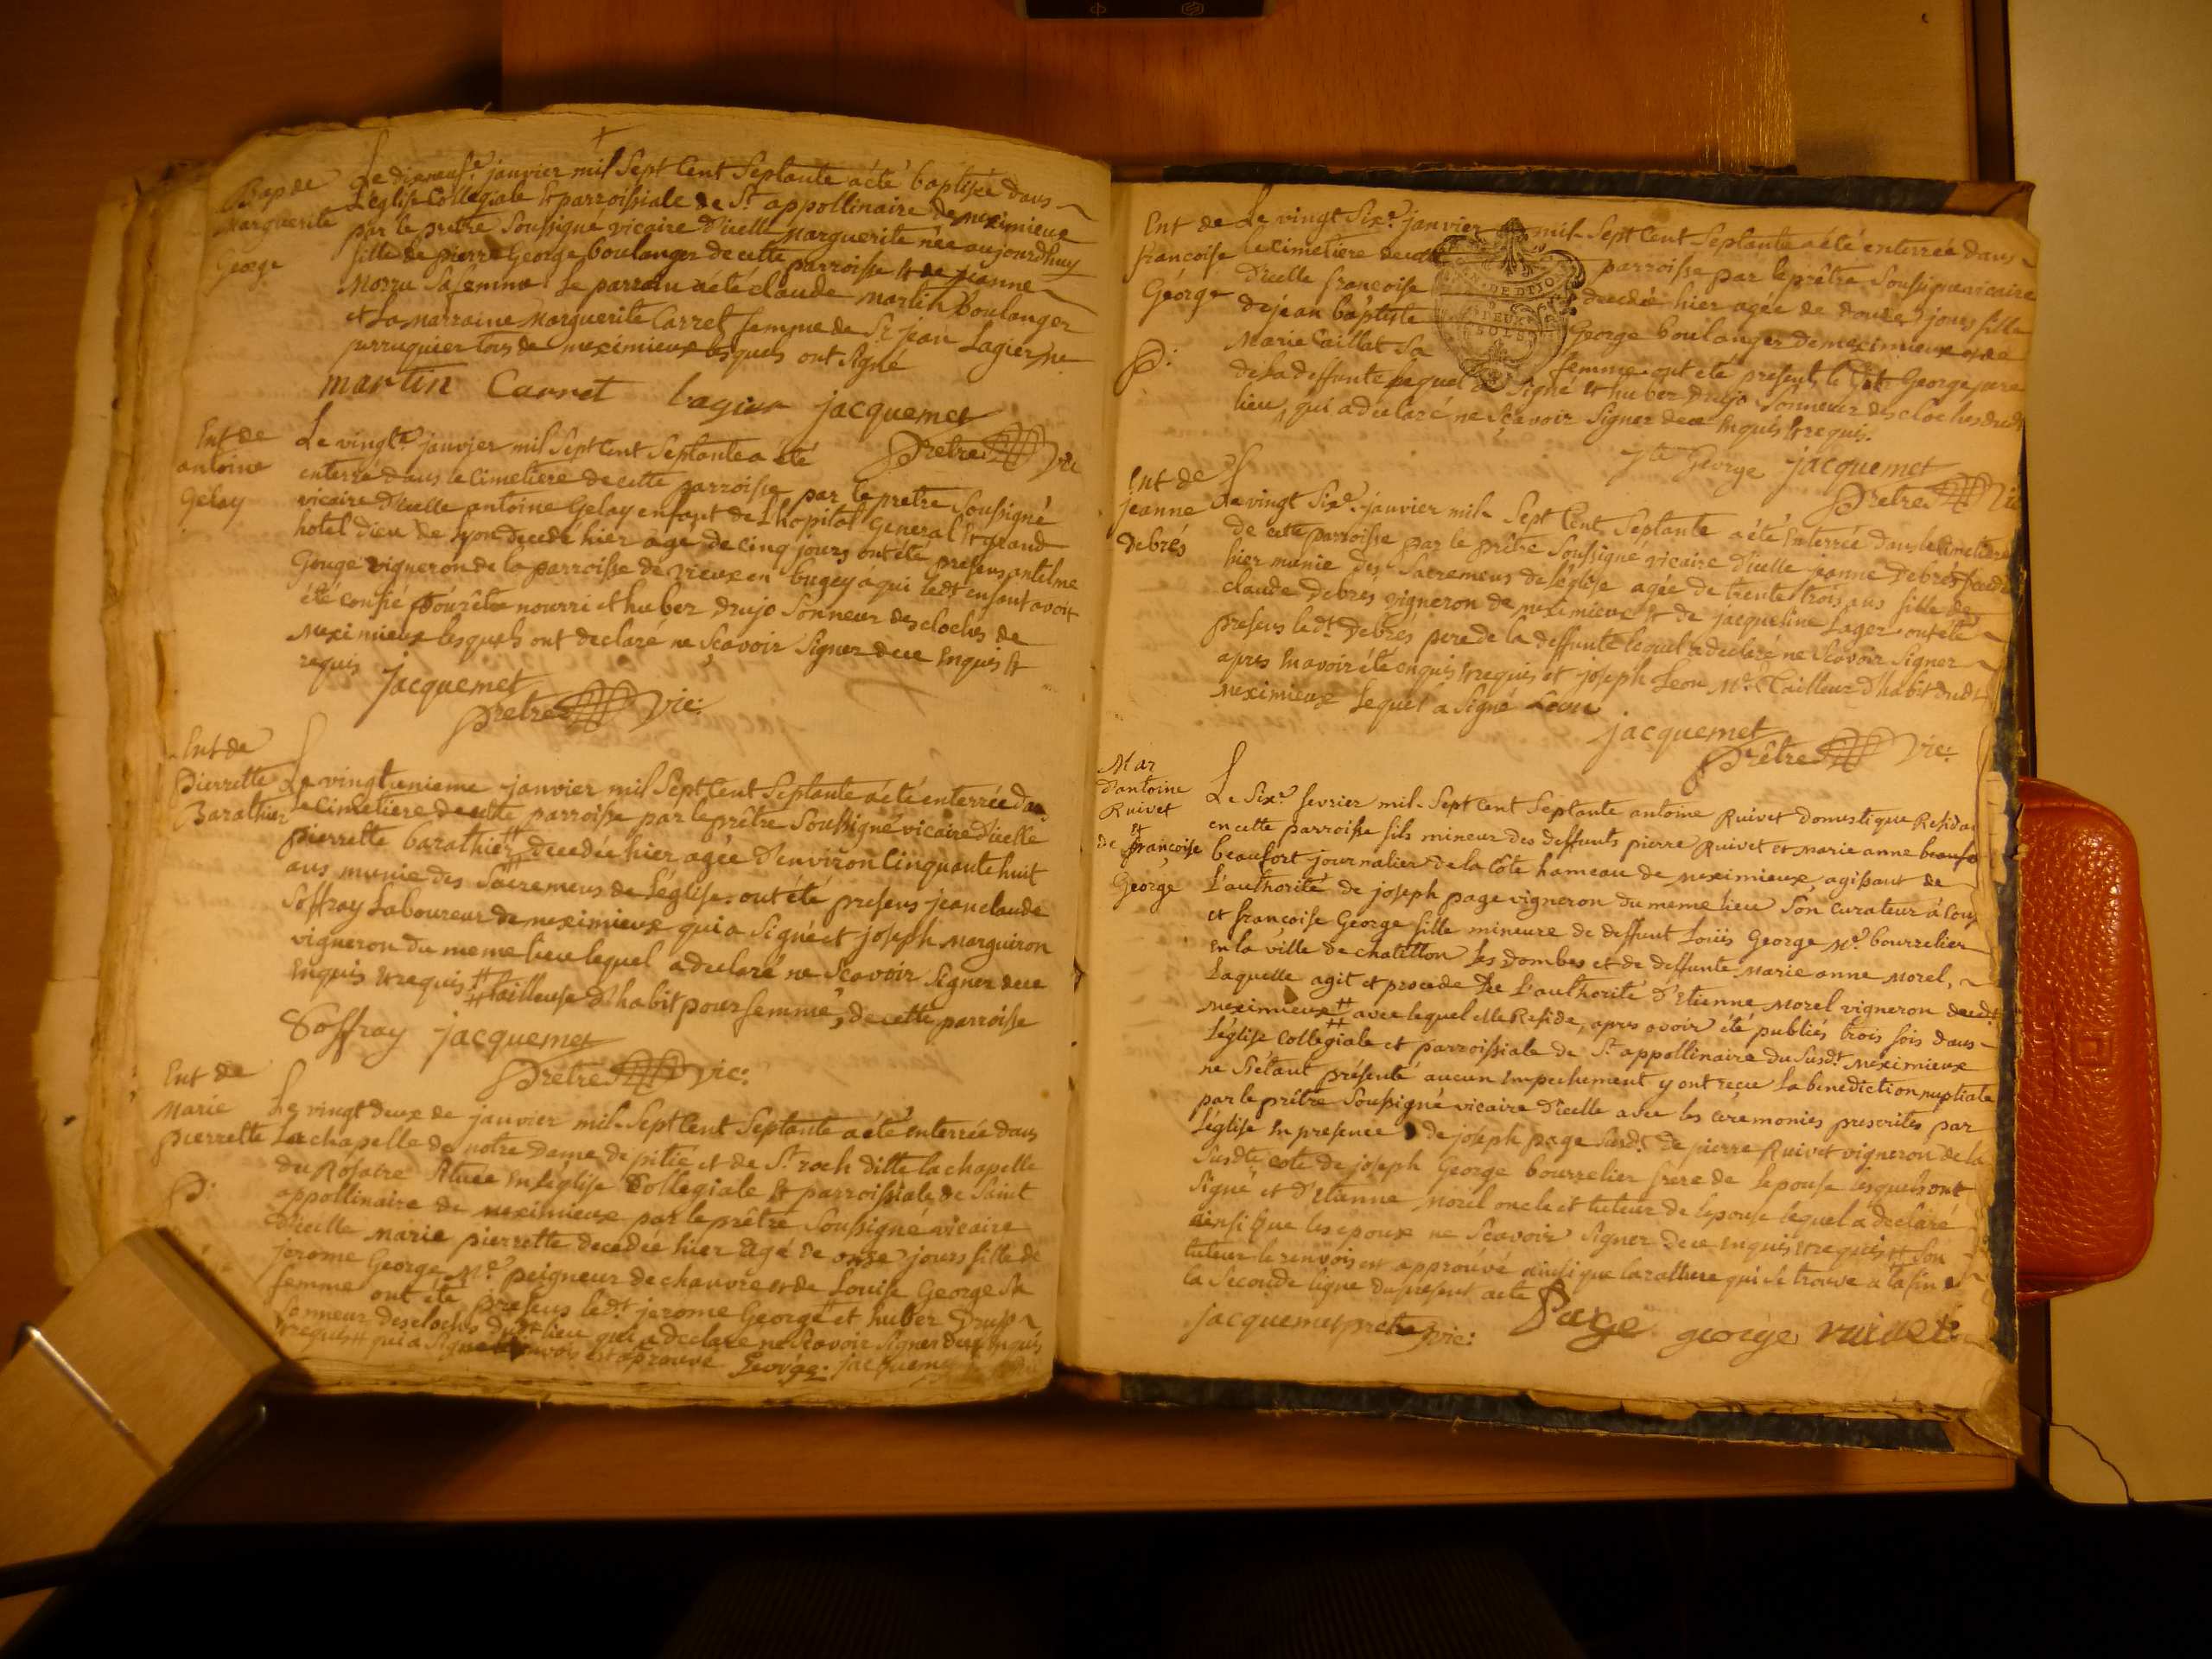 Bap de
Marguerite
George
Le dixneuf.e janvier mil Sept Cent Septante a été baptisée dans
L'église Collegiale et parroissiale de St. appollinaire de meximieux
par le prêtre Soussigné vicaire d'icelle Marguerite née aujourdhuy
fille de pierre George boulanger de cette parroisse et de jeanne
Morru Sa femme. Le parrain a été claude Martin Boulanger
et La Marraine Marguerite Carret femme de Sr. jean Lagier me.
perruquier tous de meximieux lesquels ont Signé
martin Carret Lagier jacquemet
Prêtre Vic
Ent de
antoine
Gelay
Le vingt.e janvier mil Sept Cent Septante a été
enterré dans le Cimetiere de cette parroisse par le prêtre Soussigné
vicaire d'icelle antoine Gelay enfant de L'hopital General et grand
hotel dieu de Lyon decedé hier agé de cinq jours ont été presens antelme
Gouge vigneron de la parroisse de vieux en bugey à qui ledt. enfant avoit
été confié pour être nourri et huber drujo Sonneur des cloches de
Meximieux lesquels ont declaré ne Sçavoir Signer de ce Enquis et
requis
jacquemet
Prêtre Vic:
Ent de
Pierrette
Barathier
Le vingtunieme janvier mil Sept Cent Septante a été enterrée dans
Le Cimetiere de cette parroisse par le prêtre Soussigné vicaire d'icelle
pierrette barathier # decedée hier agée d'environ Cinquante huit
ans munie des Sacremens de L'église. ont été presens jean claude
Soffray Laboureur de meximieux qui a Signé et joseph Marguiron
vigneron du meme lieu lequel a declaré ne Scavoir Signer de ce
Enquis et requis # # tailleuse d'habit pour femme, de cette parroisse
Soffray jacquemet
Prêtre vic:
Ent de
Marie
pierrette
Le vingt deux de janvier mil Sept Cent Septante a été enterrée dans
La chapelle de notre Dame de pitié et de St. roch ditte la chapelle
du Rosaire Située en L'église Collegiale et parroissiale de Saint
appollinaire de meximieux par le prêtre Soussigné vicaire
d'icelle Marie pierrette decedée hier agé de onze jours fille de
jerome George Me. peigneur de chanvre et de Louise George Sa
femme ont été presens ledt. jerome George # et huber Drujo
Sonneur des cloches dudt. lieu qui a declaré ne Scavoir Signer de ce Enquis
et requis # qui a Signé le renvois est aprouvé George. jacquemet
Ent de
francoise
George
Le vingt Six.e janvier mil Sept Cent Septante a été enterrée dans
le cimetiere de cette parroisse par le prêtre Soussigné vicaire
d'icelle francoise decedée hier agée de douze jours fille
de jean baptiste George boulanger de meximieux et de
Marie Caillat Sa femme. ont été presents le dt. George pere
de La deffunte lequel a Signé et huber Drujo Sonneur des cloches dudt
lieu, qui a declaré ne Sçavoir Signer de ce Enquis et requis.
Jte George jacquemet
Prêtre Vic
Ent de
jeanne
Debrés
Le vingt Six.e janvier mil Sept Cent Septante a été Enterrée dans le Cimetiere
de cette parroisse par le prêtre Soussigné vicaire d'icelle jeanne Debrés decedée
hier munie des Sacremens de L'église agée de trente trois ans fille de
claude Debrés vigneron de meximieux et de jacqueline Lager ont été
presens ledt. Debrés pere de la deffunte lequel a declaré ne Scavoir Signer
apres En avoir été enquis et requis et joseph Leon Me. Tailleur d'habit dudt
Meximieux Lequel a Signé Leon
jacquemet
Prêtre Vic:
Mar
d'antoine
Ruivet
et
de françoise
George
Le Six.e fevrier mil Sept Cent Septante antoine Ruivet domestique Residant
en cette parroisse fils mineur des deffunts pierre Ruivet et Marie anne beaufort
beaufort journalier de la Côte hameau de meximieux agissant de
L'authorité de joseph page vigneron du meme lieu Son Curateur
et françoise George fille mineure de deffunt Loüis George Me. bourrelier
en la ville de chatillon Les Dombes et de deffunte Marie anne Morel,
Laquelle agit et procede de L'authorité d'Etienne Morel vigneron dudt
Meximieux # avec lequel elle Reside, apres avoir été publiés trois fois dans
L'église Collegiale et parroissiale de St. appollinaire du Susdt. Meximieux
ne S'étant présenté aucun Empechement y ont reçu La benediction nuptiale
par le prêtre Soussigné vicaire d'icelle avec les ceremonies prescrites par
L'église En presence de joseph page Susdt. de pierre Ruivet vigneron de la
Susdte cote de joseph George bourrelier frere de L'epouse lesquels ont
Signé et d'Etienne Morel oncle et tuteur de L'epouse lequel a declaré
ainsi que les epoux ne Scavoir Signer de ce enquis et requis # Son
tuteur le renvois est approuvé ainsi que la rature qui Se trouve à la fin
la Seconde ligne du present acte
jacquemet prêtre vic: Page george ruivet